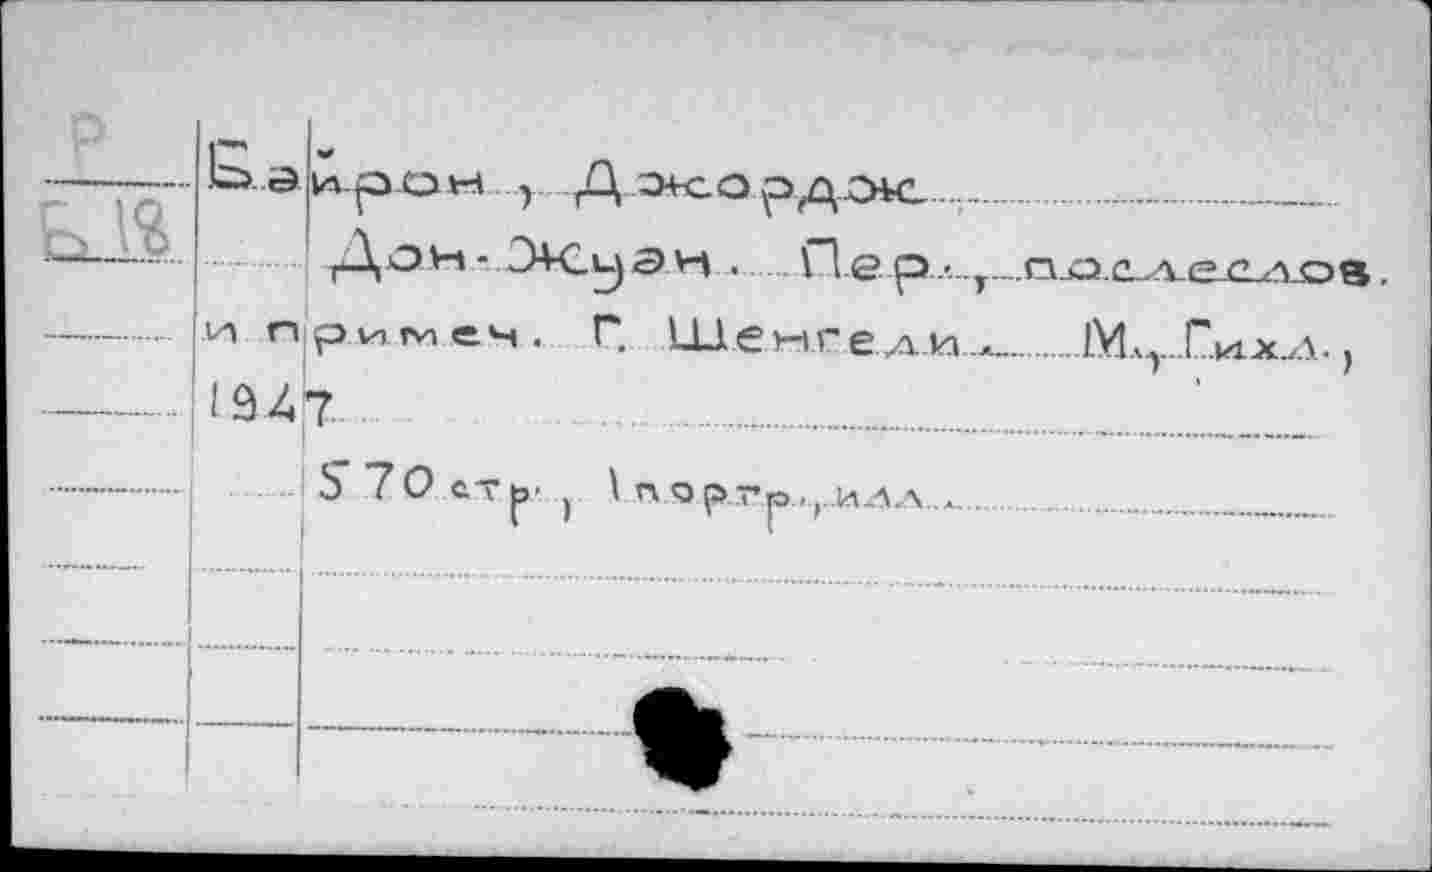 Р
Б18
Байрон, Джордж
Дон-Жуан. Пер., послеслов.
и примеч. Г. Шенгели. М., Гихл.,
1947
570 стр., 1 портр., илл.